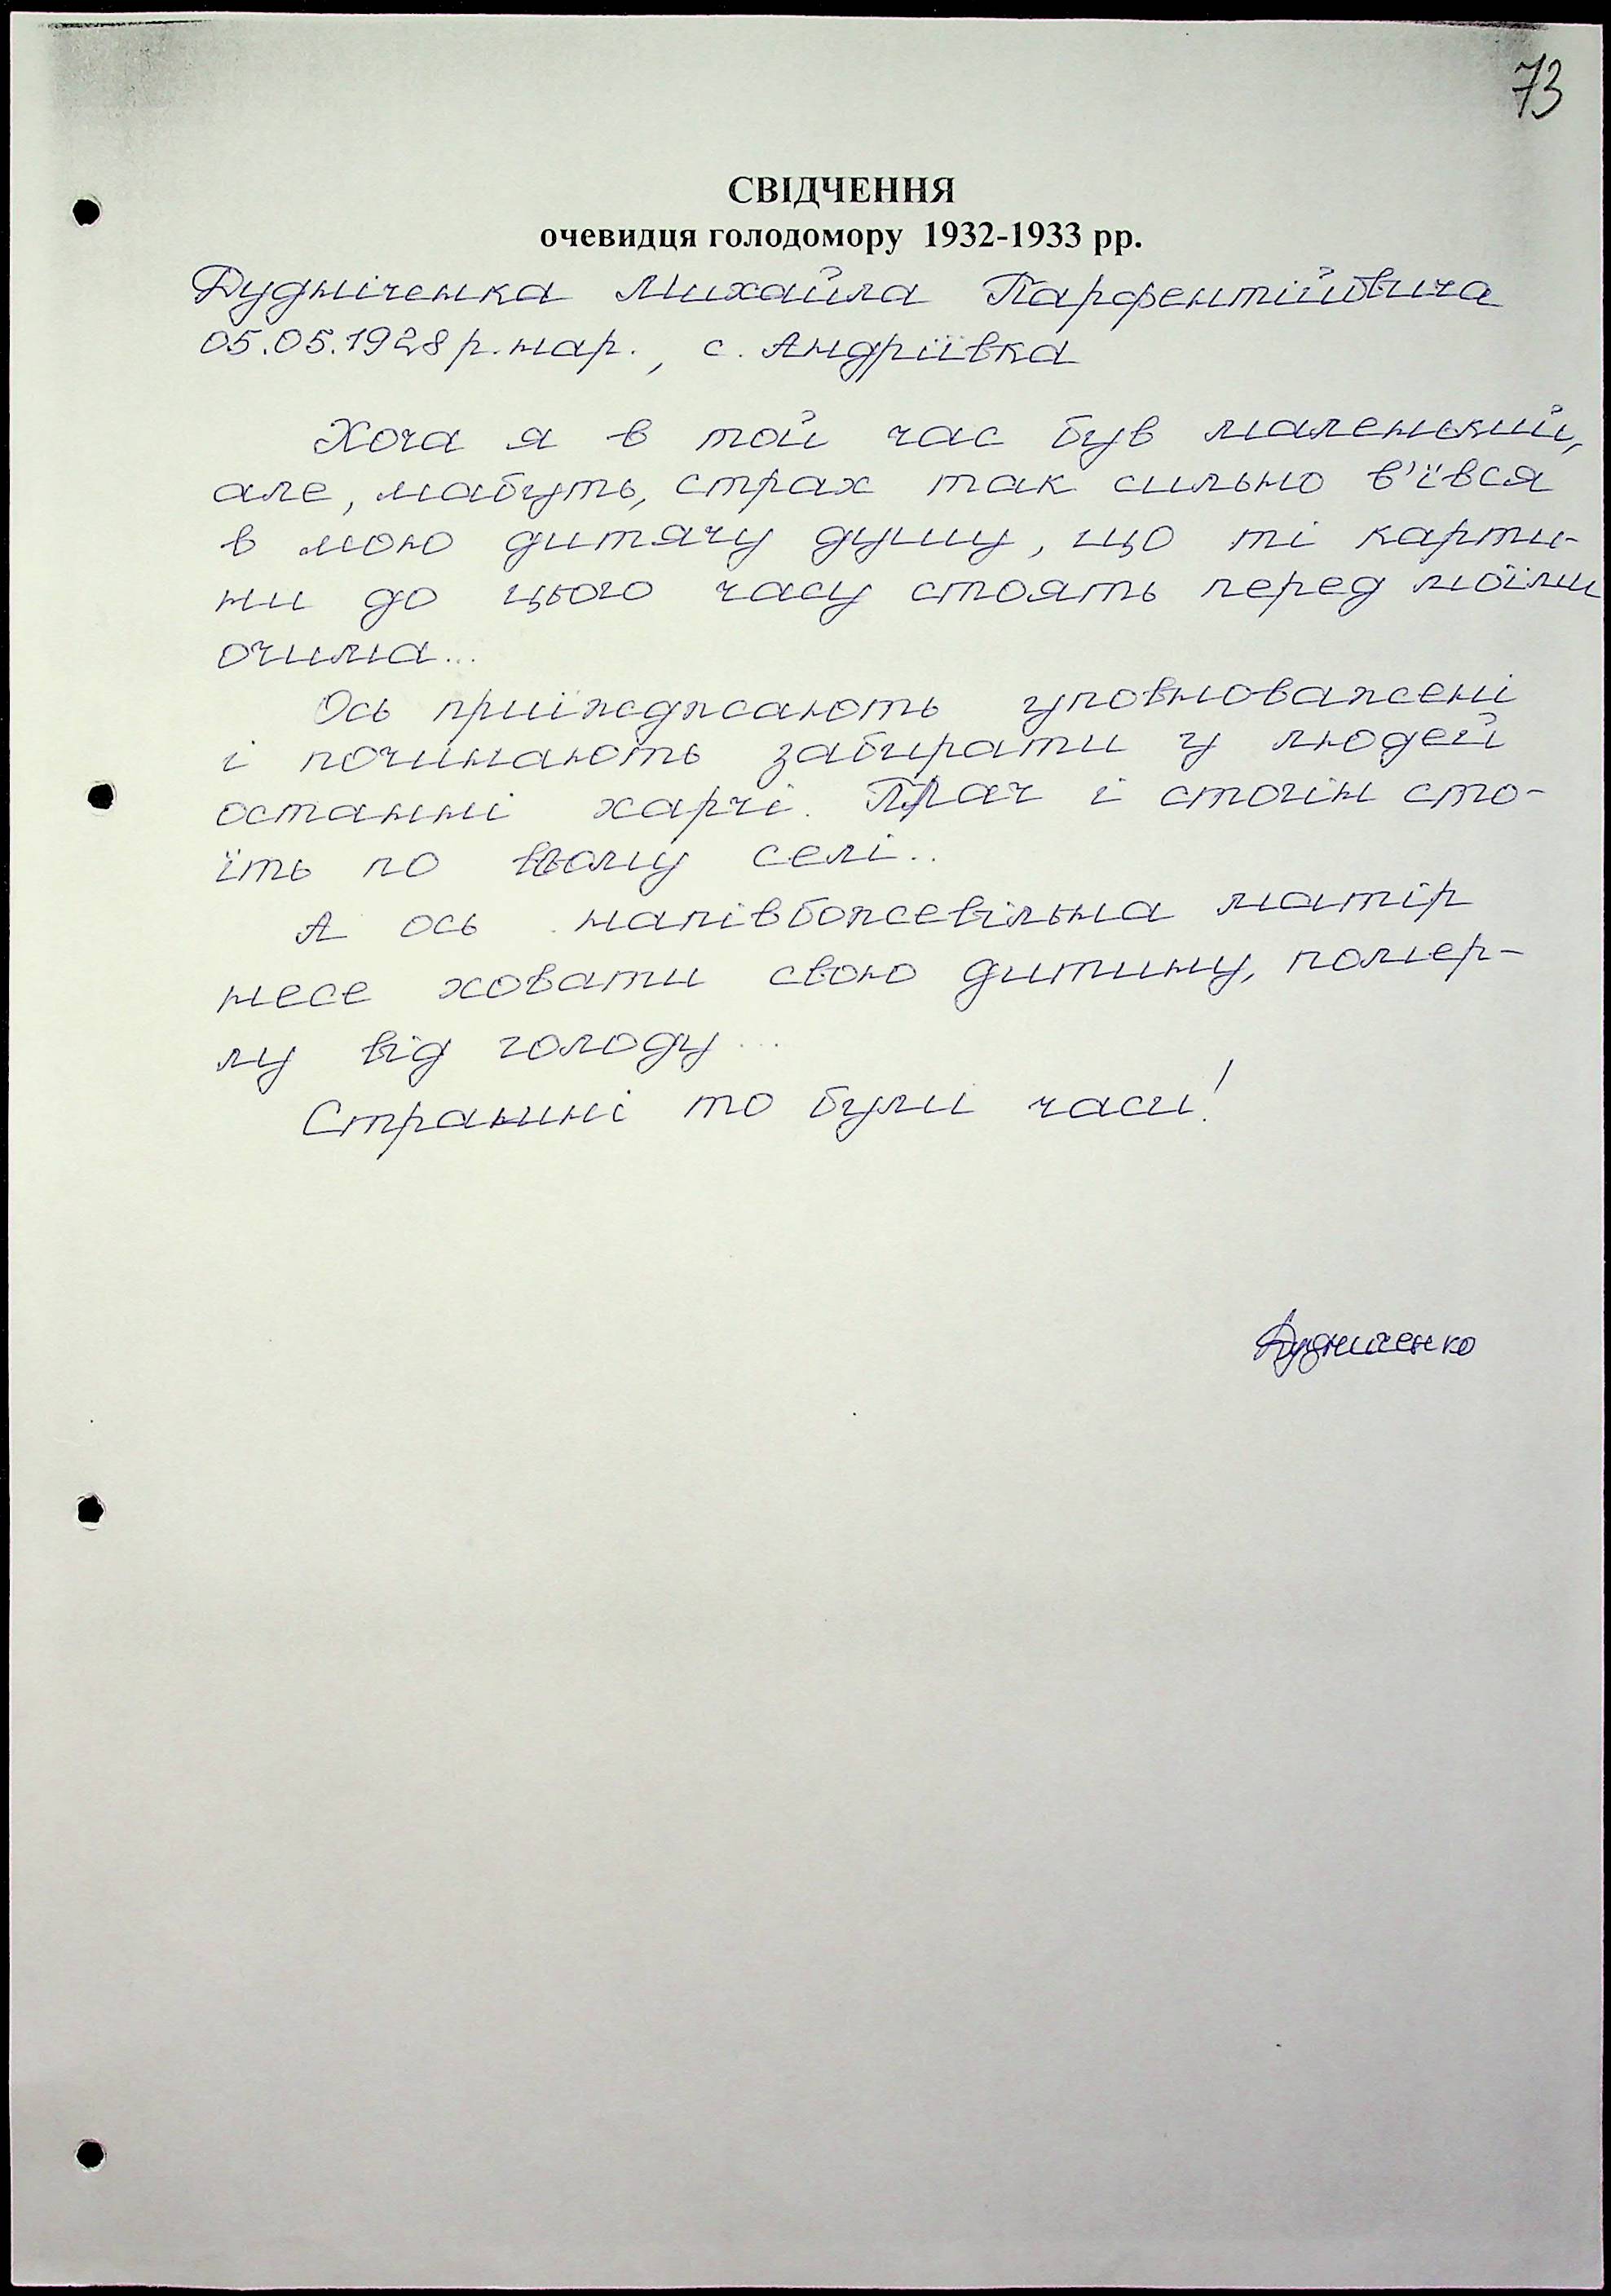 73
СВІДЧЕННЯ
очевидця голодомору 1932-1933 рр.
Дудніченка Михайла Парфентійовича
05.05.1928 р. нар., с. Андріївка
Хоча я в той час був маленький,
але, мабуть, страх так сильно в'ївся
в мою дитячу душу, що ті карти-
ни до цього часу стоять перед моїми
очима...
Ось приїжджають уповноважені
і починають забирати у людей
останні харчі. Плач і стогін сто-
їть по всьому селі..
А ось напівбожевільна матір
несе ховати свою дитину, помер-
лу від голоду...
Страшні то були часи!
Дудниченко